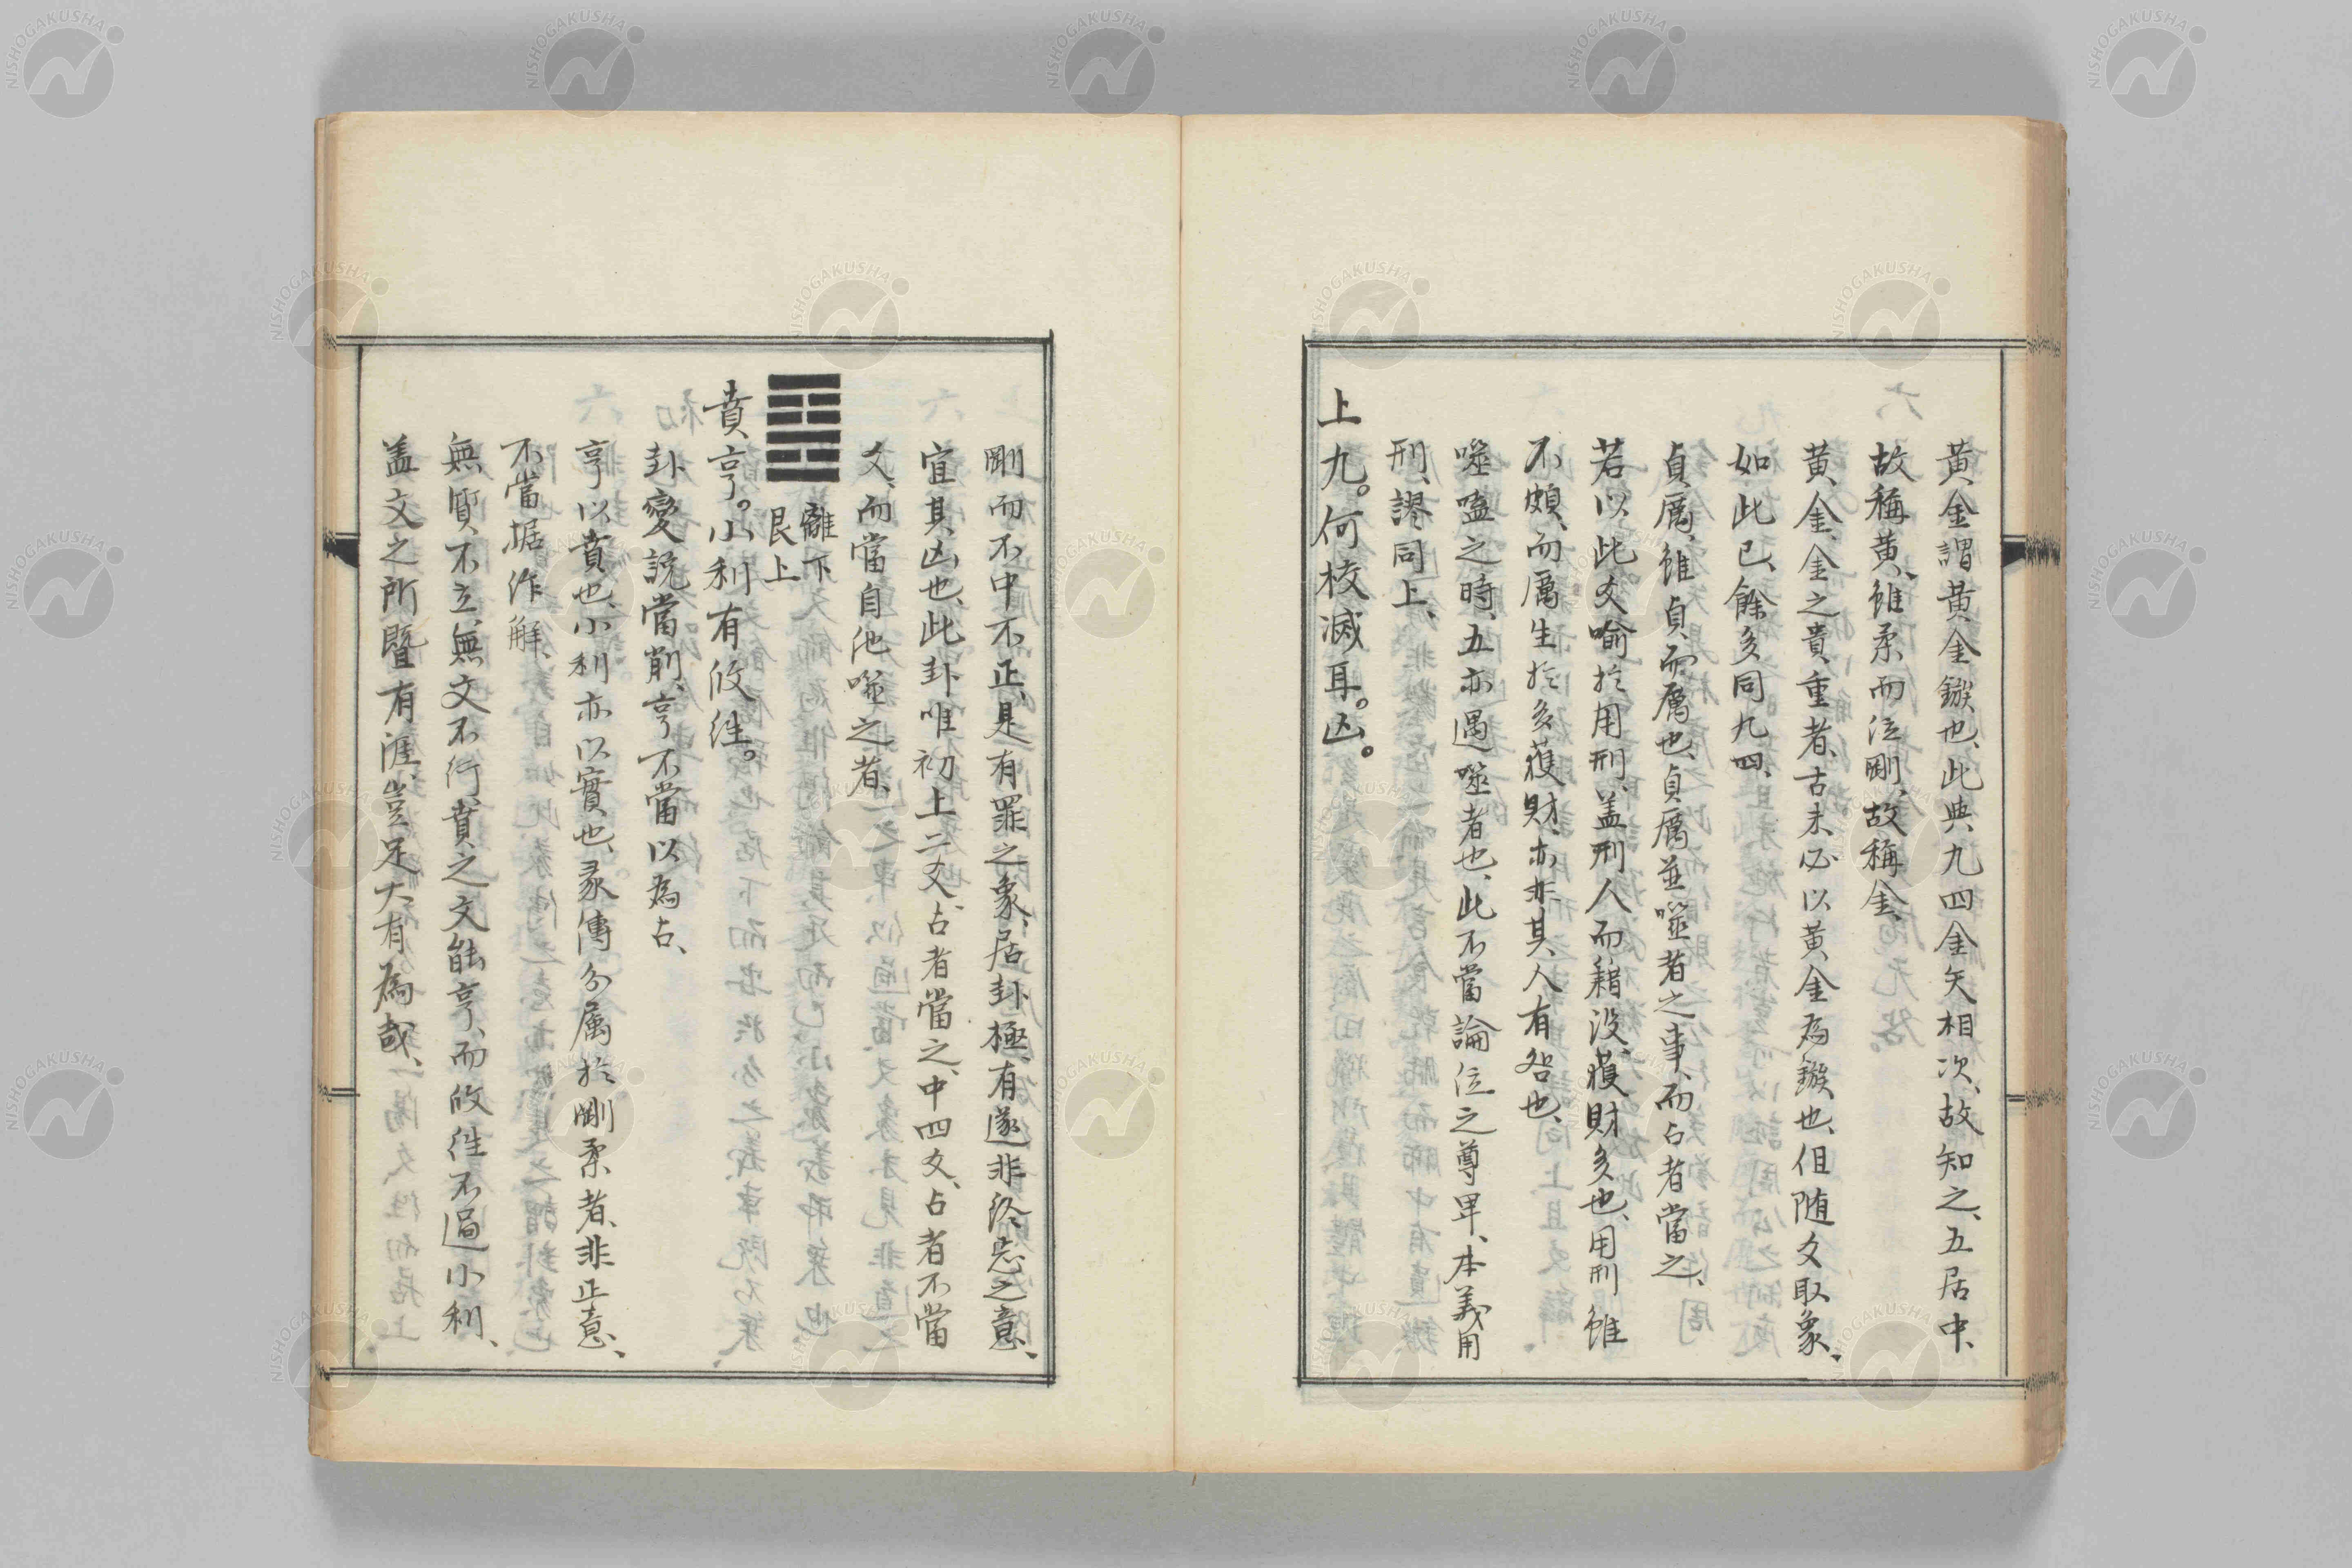 黄金謂黄金鏃也、此與九四金矢相次、故知之、五居中、
故稱黄、雖柔而位剛、故稱金、
黄金、金之貴重者、古未必以黄金為鏃也、但随爻取象、
如此已、餘多同九四、
貞厲、雖貞而厲也、貞厲並噬者之事、而占者當之、
若以此爻喻於用刑、盖刑人而籍没、獲財多也、用刑雖
不頗、而厲生於多獲財、亦非其人有咎也、
噬嗑之時、五亦遇噬者也、此不當論位之尊卑、本義用
刑、謬同上、
上九。何校滅耳。凶。
剛而不中不正、是有罪之象、居卦極、有遂非終忘之意、
宜其凶也、此卦唯初上二爻、占者當之、中四爻、占者不當
爻、而當自他噬之者、
離下
艮上
賁亨。小利有攸往。
卦變説當削、亨不當以為占、
亨以賁也、小利亦以賁也、彖傳分属於剛柔者、非正意、
不當据作解、
無質不立、無文不行、賁之文能亨、而攸往不過小利、
盖文之所暨有涯、豈足大有為哉、